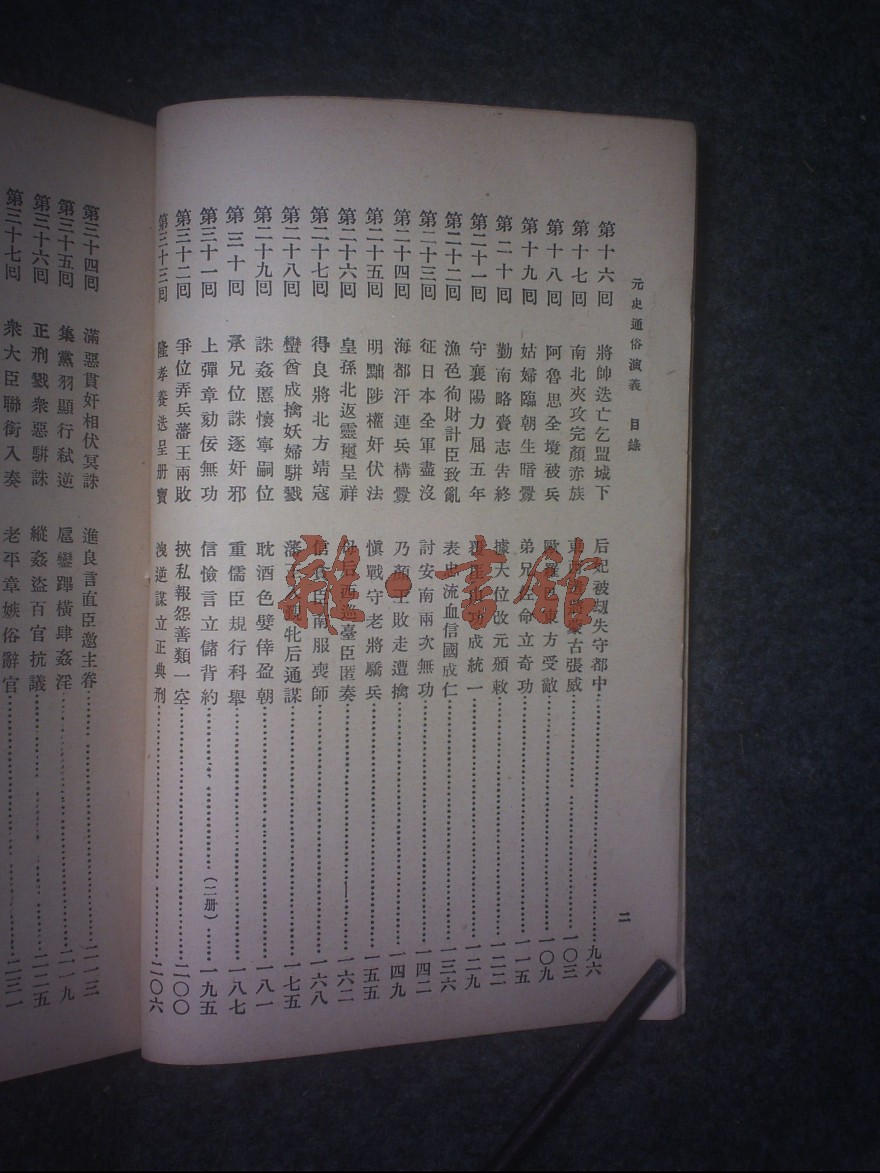 元史通俗演義 目錄
二
第十六囘 將帥迭亡乞盟城下 后妃被劫失守都中 九六
第十七囘 南北夾攻完顏赤族 東 蒙古張威 一〇三
第十八囘 阿魯思全境被兵 歐 東方受敵 一〇九
第十九囘 姑婦臨朝生暗釁 弟兄 命立奇功 一一五
第二十囘 勤南略賚志吿終 據大位改元頒敕 一二二
第二十一囘 守襄陽力屈五年 功成統一 一二九
第二十二囘 漁色徇財計臣致亂 表忠流血信國成仁 一三六
第二十三囘 征日本全軍盡沒 討安南兩次無功 一四二
第二十四囘 海都汗連兵構釁 乃顏王敗走遭擒 一四九
第二十五囘 明黜陟權奸伏法 愼戰守老將驕兵 一五五
第二十六囘 皇孫北返靈璽呈祥 母后西巡臺臣匿奏 一六二
第二十七囘 得良將北方靖寇 信 臣南服喪師 一六八
第二十八囘 蠻酋成擒妖婦駢戮 藩 牝后通謀 一七五
第二十九囘 誅姦慝懷寧嗣位 耽酒色嬖倖盈朝 一八一
第三十囘 承兄位誅逐奸邪 重儒臣規行科舉 一八七
第三十一囘 上彈章劾佞無功 信憸言立儲背約 (二册) 一九五
第三十二囘 爭位弄兵藩王兩敗 挾私報怨善類一空 二〇〇
第三十三囘 隆孝養迭呈册寶 洩逆謀立正典刑 二〇六
第三十四囘 滿惡貫奸相伏冥誅 進良言直臣邀主眷 二一三
第三十五囘 集黨羽顯行弒逆 扈鑾蹕橫肆姦淫 二一九
第三十六囘 正刑戮衆惡駢誅 縱姦盜百官抗議 二二五
第三十七囘 衆大臣聯銜入奏 老平章嫉俗辭官 二三一
雜·書館